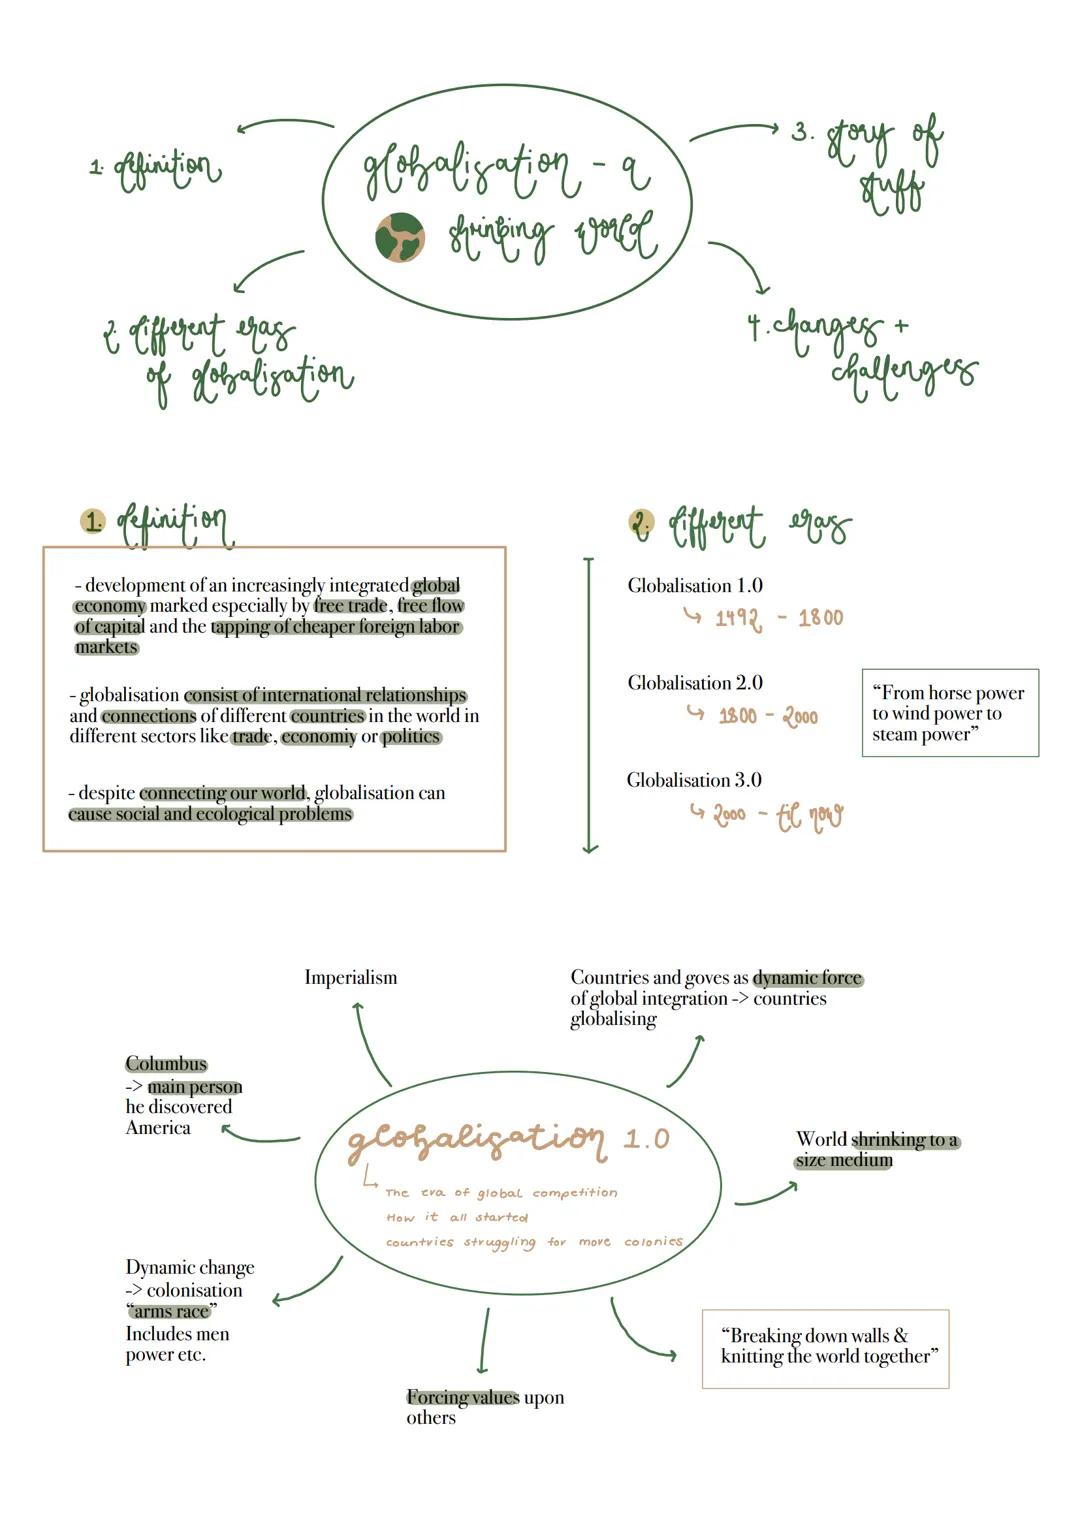 globalisation - a
shrinking world
1. definition
2. different eras
of globalisation
3. story of
stuff
4. changes +
challenges
1. definition
- development of an increasingly integrated global
economy marked especially by free trade, free flow
of capital and the tapping of cheaper foreign labor
markets
- globalisation consist of international relationships
and connections of different countries in the world in
different sectors like trade, economiy or politics
- despite connecting our world, globalisation can
cause social and ecological problems
2. different eras
Globalisation 1.0
1492 - 1800
Globalisation 2.0
1800 - 2000
Globalisation 3.0
2000 - til now
“From horse power
to wind power to
steam power”
Imperialism
Countries and goves as dynamic force
of global integration -> countries
globalising
Columbus
-> main person
he discovered
America
globalisation 1.0
The era of global competition
How it all started
countries struggling for more colonies
World shrinking to a
size medium
Dynamic change
-> colonisation
“arms race”
Includes men
power etc.
“Breaking down walls &
knitting the world together”
Forcing values upon
others